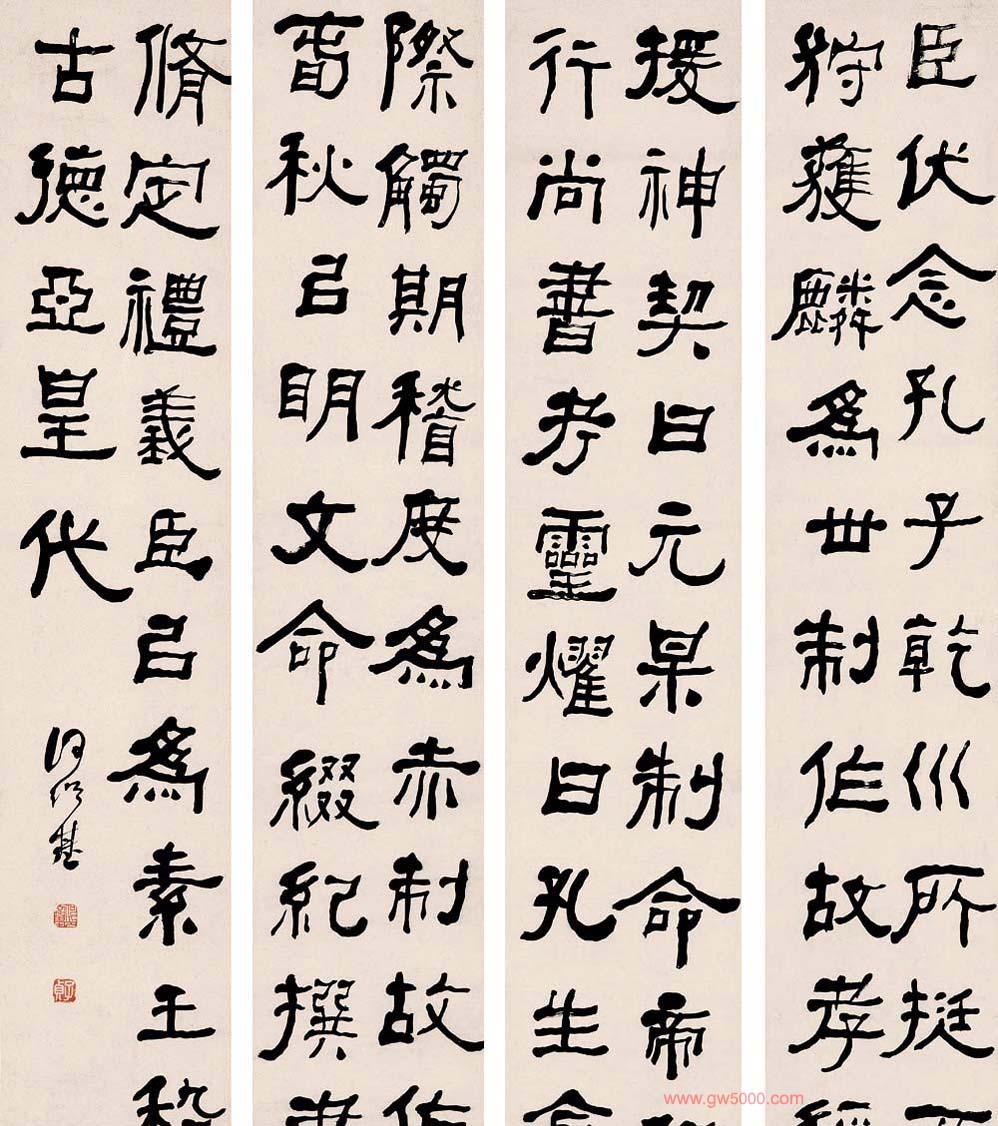 臣伏念孔子乾巛所挺
狩獲麟為世制作故孝經
援神契曰元杲制命帝
行尚書考靈燿曰孔生
際觸期稽度為赤制故作
春秋㠯明文命綴紀撰書
脩定禮義臣㠯為素王稽
古德亞皇代
何紹基
子貞
www.gw5000.com